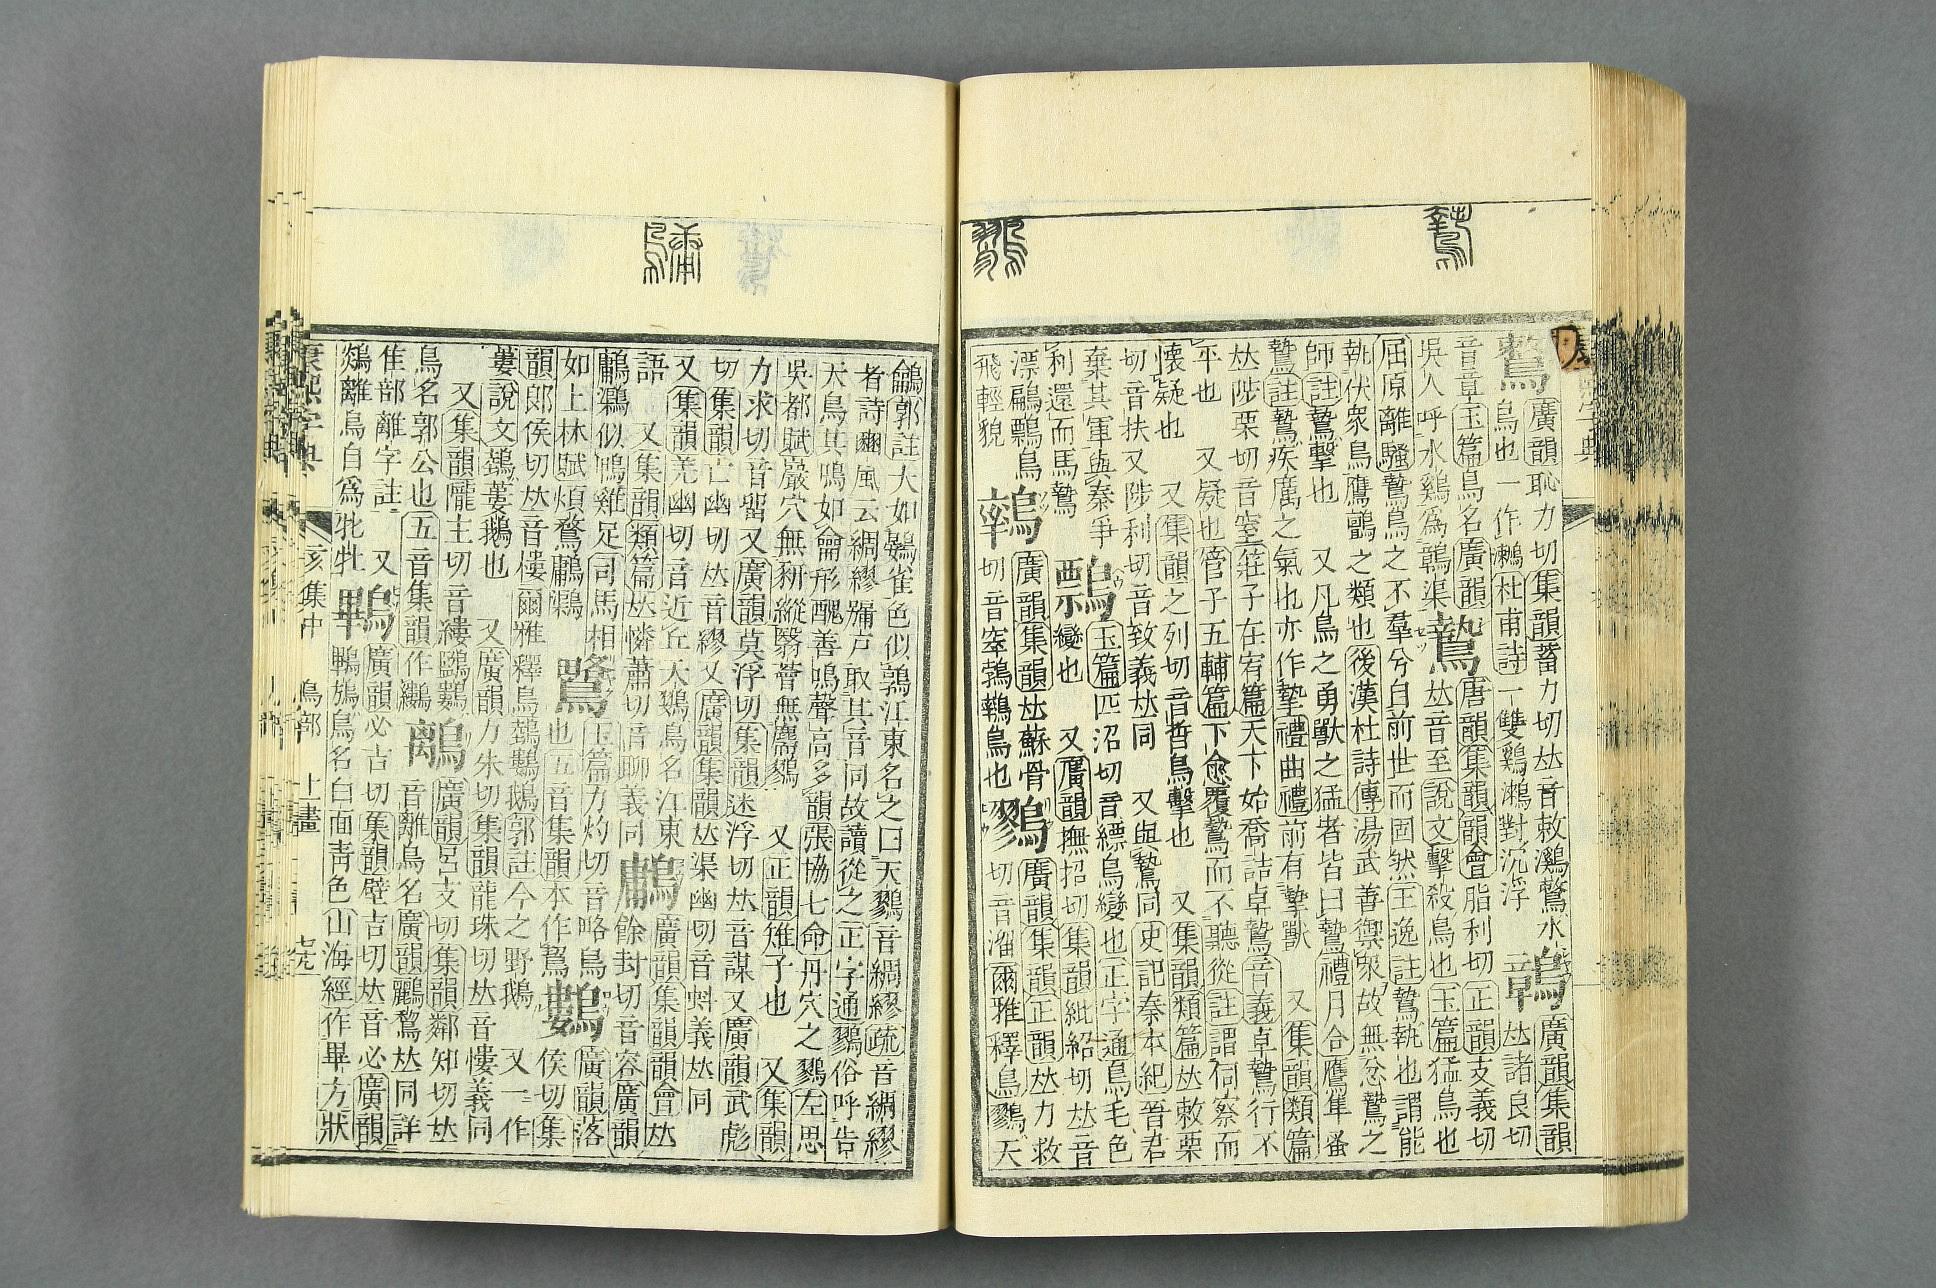 廣韻恥力切集韻蓄力切𠀤音敕鸂鶒水
鳥也一作鷘杜甫詩一雙鸂鶒對沉浮
鷙
鶰
廣韻集韻
𠀤諸良切
音章玉篇鳥名廣韻
吳人呼水鷄爲鶰渠
鷙
唐韻集韻韻會脂利切正韻支義切
𠀤音至說文擊殺鳥也玉篇猛鳥也
屈原離騷鷙鳥之不羣兮自前世而固然王逸註鷙執也謂能
執伏衆鳥鷹鸇之類也後漢杜詩傳湯武善御衆故無忿鷙之
師註鷙擊也 又凡鳥之勇獸之猛者皆曰鷙禮月令鷹隼蚤
鷙註鷙疾厲之氣也亦作摯禮曲禮前有摯獸 又集韻類篇
𠀤陟栗切音窒莊子在宥篇天下始喬詰卓鷙音義卓鷙行不
平也 又疑也管子五輔篇下愈覆鷙而不聽從註謂伺察而
懷疑也 又集韻之列切音哲鳥擊也 又集韻類篇𠀤敕栗
切音抶又陟利切音致義𠀤同 又與鷙同史記秦本紀晉君
棄其軍與秦爭
利還而馬鷙
鷅
玉篇匹沼切音縹鳥變也正字通鳥毛色
變也 又廣韻撫招切集韻紕紹切𠀤音
漂鶣鷅鳥
飛輕貌
廣韻集韻𠀤蘇骨
切音窣鶟鶟鳥也
鷚
廣韻集韻正韻𠀤力救
切音溜爾雅釋鳥鷚天
鸙郭註大如鷃雀色似鶉江東名之曰天鷚音綢繆疏音綢繆
者詩豳風云綢繆牖戸取其音同故讀從之正字通鷚俗呼告
天鳥其鳴如龠形醜善鳴聲高多韻張協七命丹穴之鷚左思
吳都賦巖穴無豜豵翳薈無麢鷚 又正韻雉子也 又集韻
力求切音畱又廣韻莫浮切集韻迷浮切𠀤音謀又廣韻武彪
切集韻亡幽切𠀤音繆又廣韻集韻𠀤渠幽切音虯義𠀤同
又集韻羌幽切音近丘天鷚鳥名江東
語 又集韻類篇𠀤憐蕭切音聊義同
鷛
廣韻集韻韻會𠀤
餘封切音容廣韻
鷛鸀似鴨雞足司馬相
如上林賦煩鶩鷛鸀
玉篇力灼切音略鳥
也五音集韻本作鴼
鷜
廣韻落
侯切集
韻郎侯切𠀤音樓爾雅釋鳥鵱鷜鵝郭註今之野鵝 又一作
蔞說文鵱蔞鵝也 又廣韻力朱切集韻龍珠切𠀤音慺義同
又集韻隴主切音縷鷗鷜
鳥名郭公也五音集韻作鸓
廣韻呂支切集韻鄰知切𠀤
音離鳥名廣韻鸝鶖𠀤同詳
隹部離字註 又
鵜離鳥自爲牝牡
鷝
廣韻必吉切集韻壁吉切𠀤音必廣韻
鷝鴋鳥名白面靑色山海經作畢方狀
康熙字典
亥集中 鳥部 十一畫